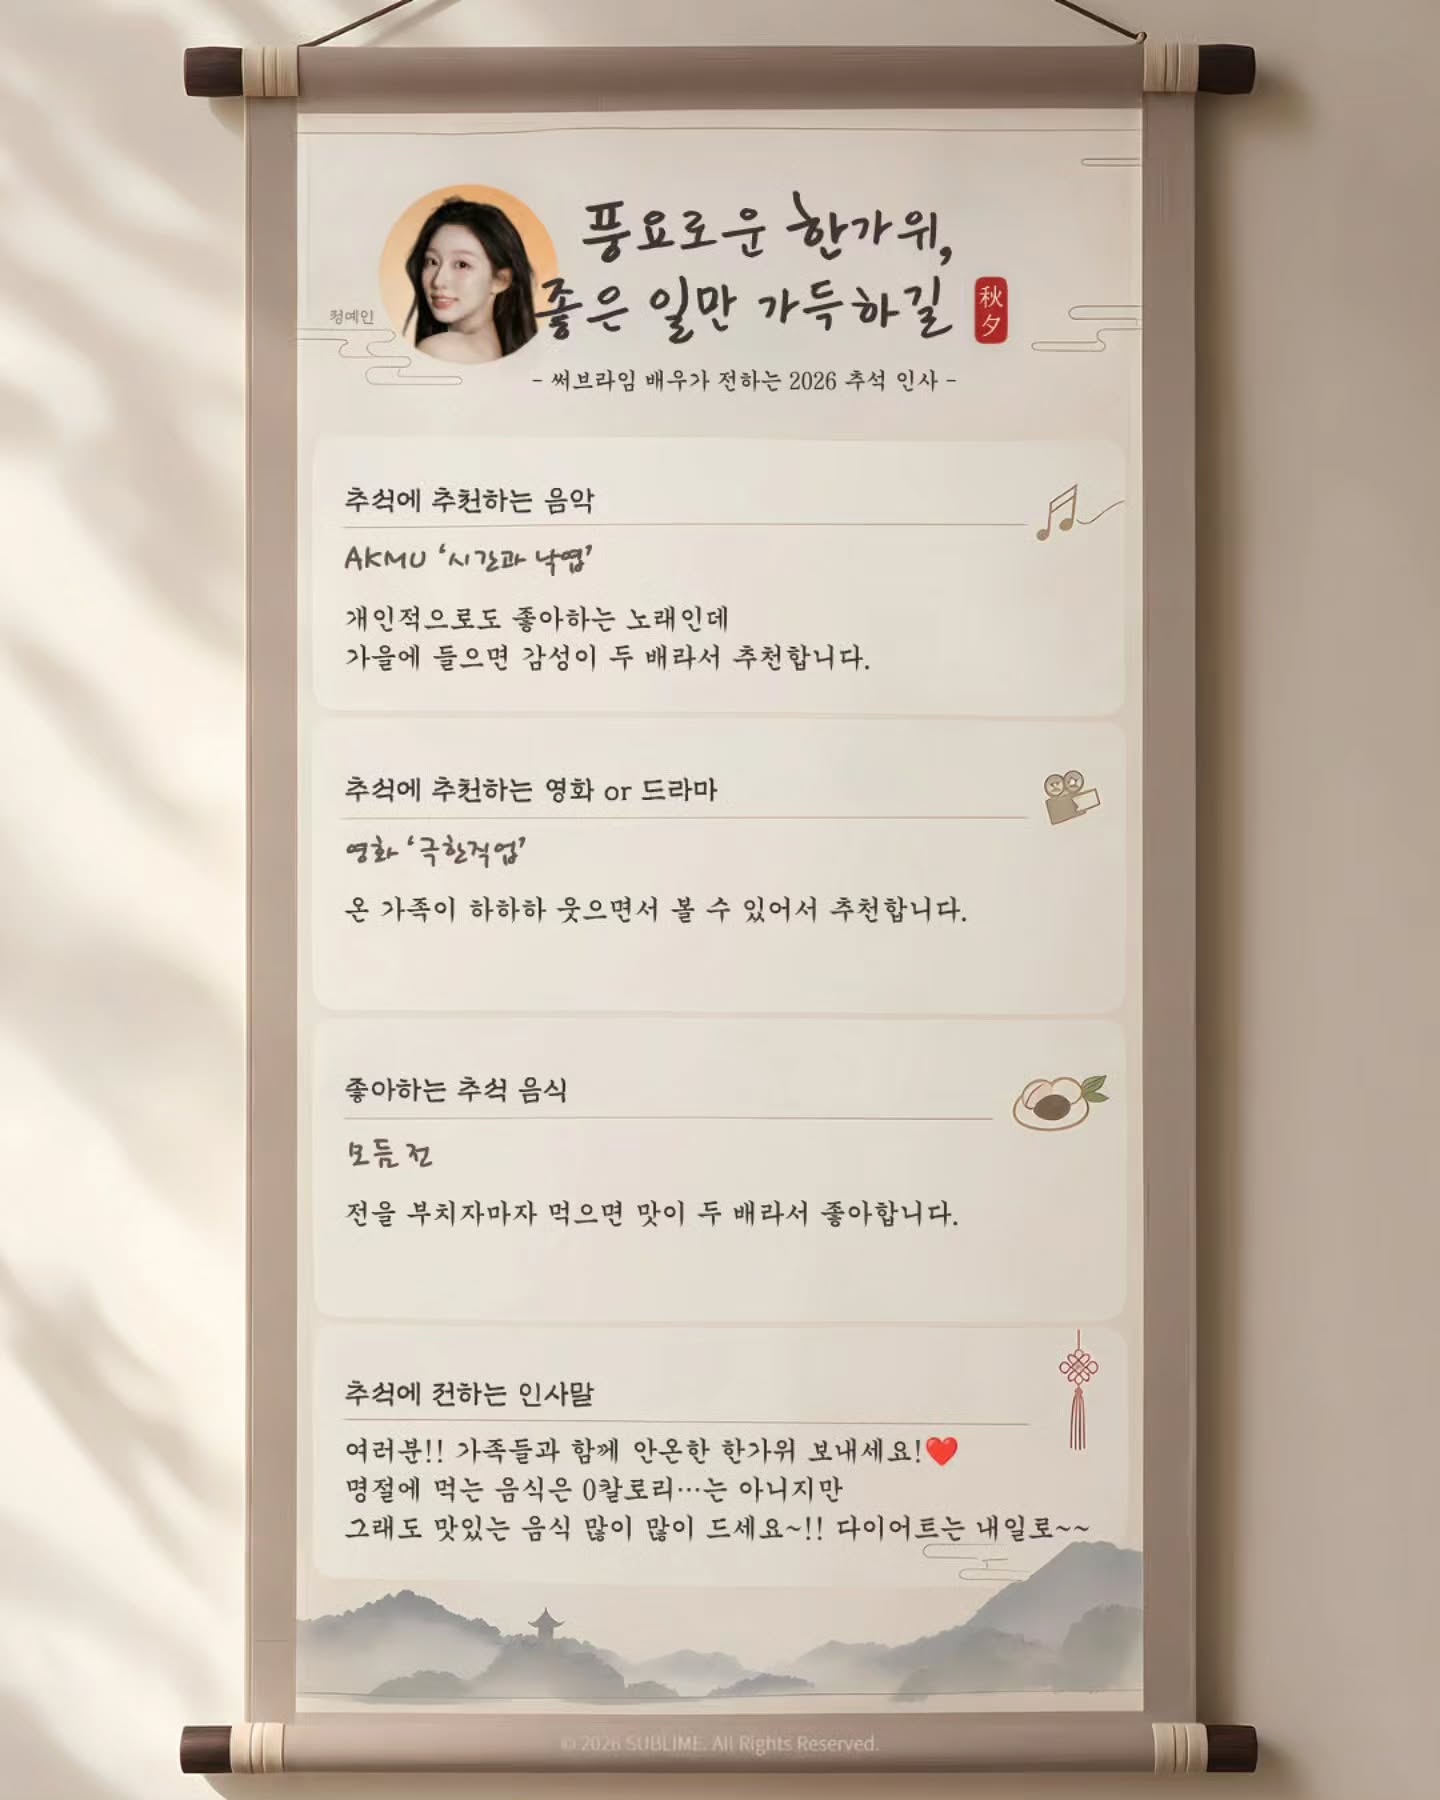 풍요로운 한가위,
좋은 일만 가득하길
秋夕
정예인
- 써브라임 배우가 전하는 2026 추석 인사 -
추석에 추천하는 음악
AKMU ‘시간과 낙엽’
개인적으로도 좋아하는 노래인데
가을에 들으면 감성이 두 배라서 추천합니다.
추석에 추천하는 영화 or 드라마
영화 ‘극한직업’
온 가족이 하하하 웃으면서 볼 수 있어서 추천합니다.
좋아하는 추석 음식
모듬 전
전을 부치자마자 먹으면 맛이 두 배라서 좋아합니다.
추석에 전하는 인사말
여러분!! 가족들과 함께 안온한 한가위 보내세요!❤️
명절에 먹는 음식은 0칼로리…는 아니지만
그래도 맛있는 음식 많이 많이 드세요~!! 다이어트는 내일로~~
© 2026 SUBLIME. All Rights Reserved.